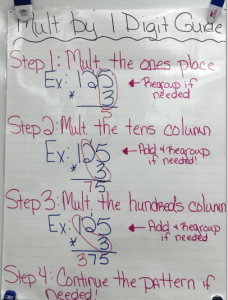 Mult by 1 Digit Guide
Step 1: Mult. the ones place
Ex: 125 ← Regroup if
* 3 needed
5
Step 2: Mult. the tens column
Ex: 125 ← Add & Regroup
* 3 if needed!
75
Step 3: Mult. the hundreds column
Ex: 125 ← Add & Regroup
* 3 if needed
375
Step 4: Continue the pattern if
needed!